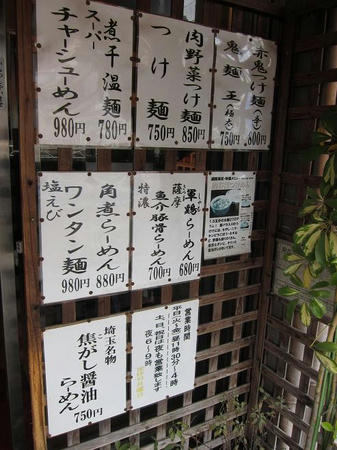 赤鬼つけ麺(辛)
800円
鬼麺王(極太)
750円
肉野菜つけ麺
850円
つけ麺
750円
煮干温麺
780円
スーパー
チャーシューめん
980円
軍鶏らーめん
680円
薩摩
魚介豚骨らーめん
特濃
700円
角煮らーめん
880円
ワンタン麺
塩えび
980円
営業時間
平日(火〜金)昼11時30分〜4時
土、日、祝は夜も営業致します
夜6〜9時
埼玉名物
焦がし醤油
らーめん
750円